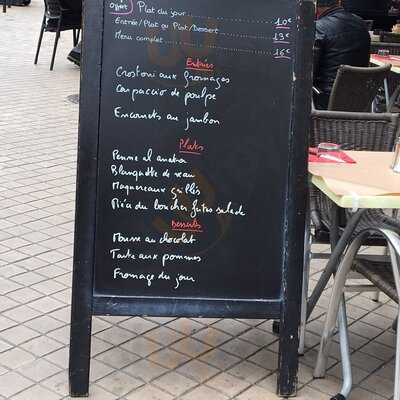 offert Plat du jour 10€
Entrée/Plat ou Plat/Dessert 13€
Menu complet 15€
Entrées
Crostoni aux fromages
Carpaccio de poulpe
Encornets au jambon
Plats
Penne al amatra
Blanquette de veau
Maquereaux grillés
Pièce du boucher frites salade
Desserts
Mousse au chocolat
Tarte aux pommes
Fromage du jour